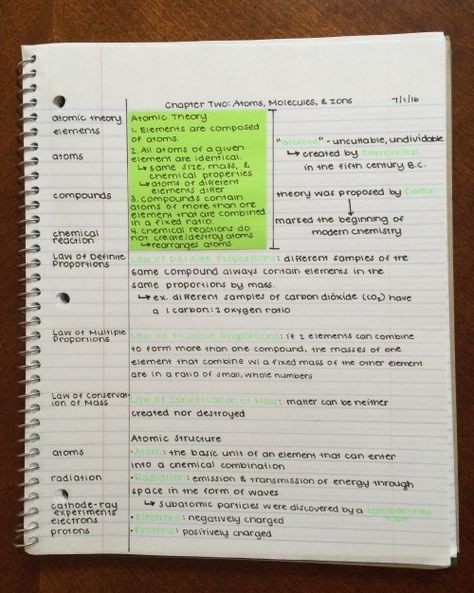 Chapter Two: Atoms, Molecules, & Ions
7/1/16
atomic theory
elements
atoms
compounds
chemical
reaction
Atomic Theory
1. Elements are composed
of atoms.
2. All atoms of a given
element are identical.
↳ same size, mass, &
chemical properties
↳ atoms of different
elements differ
3. Compounds contain
atoms of more than one
element that are combined
in a fixed ratio.
4. Chemical reactions do
not create/destroy atoms
↳ rearranges atoms
- uncuttable, undividable
↳ created by Democritus
in the fifth century B.C.
theory was proposed by Dalton
↓
marked the beginning of
modern chemistry
Law of Definite
Proportions
Law of Definite Proportions: different samples of the
same compound always contain elements in the
same proportions by mass.
↳ ex. different samples of carbon dioxide (CO2) have
a 1 carbon: 2 oxygen ratio
Law of Multiple
Proportions
Law of Multiple Proportions: if 2 elements can combine
to form more than one compound, the masses of one
element that combine w/ a fixed mass of the other element
are in a ratio of small, whole numbers
Law of Conservat-
ion of Mass
Law of Conservation of Mass: matter can be neither
created nor destroyed
Atomic Structure
atoms
• Atom: the basic unit of an element that can enter
into a chemical combination
radiation
• Radiation: emission & transmission of energy through
space in the form of waves
cathode-ray
experiments
↳ subatomic particles were discovered by a cathode-ray
tube
electrons
• Electrons: negatively charged
protons
• Protons: positively charged